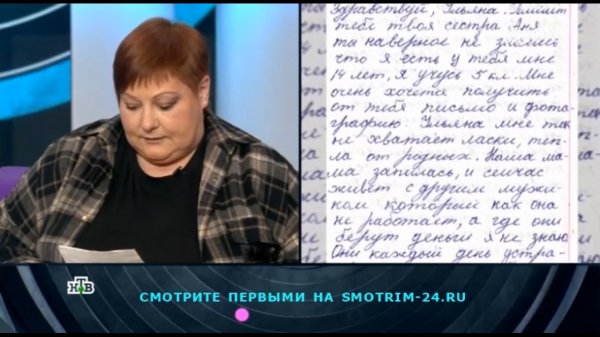 Здравствуй, Ульяна. Пишет
тебе твоя сестра Аня
ты наверное не знаешь
что я есть у тебя мне
14 лет, я учусь 5 кл. Мне
очень хочется получить
от тебя письмо и фото-
графию. Ульяна мне так
не хватает ласки, теп-
ла от родных. Наша ма-
ма запилась, и сейчас
живет с другим мужи-
ком который как она
не работает, а где они
берут деньги я не знаю
Они каждый день устра-
НТВ
СМОТРИТЕ ПЕРВЫМИ НА SMOTRIM-24.RU